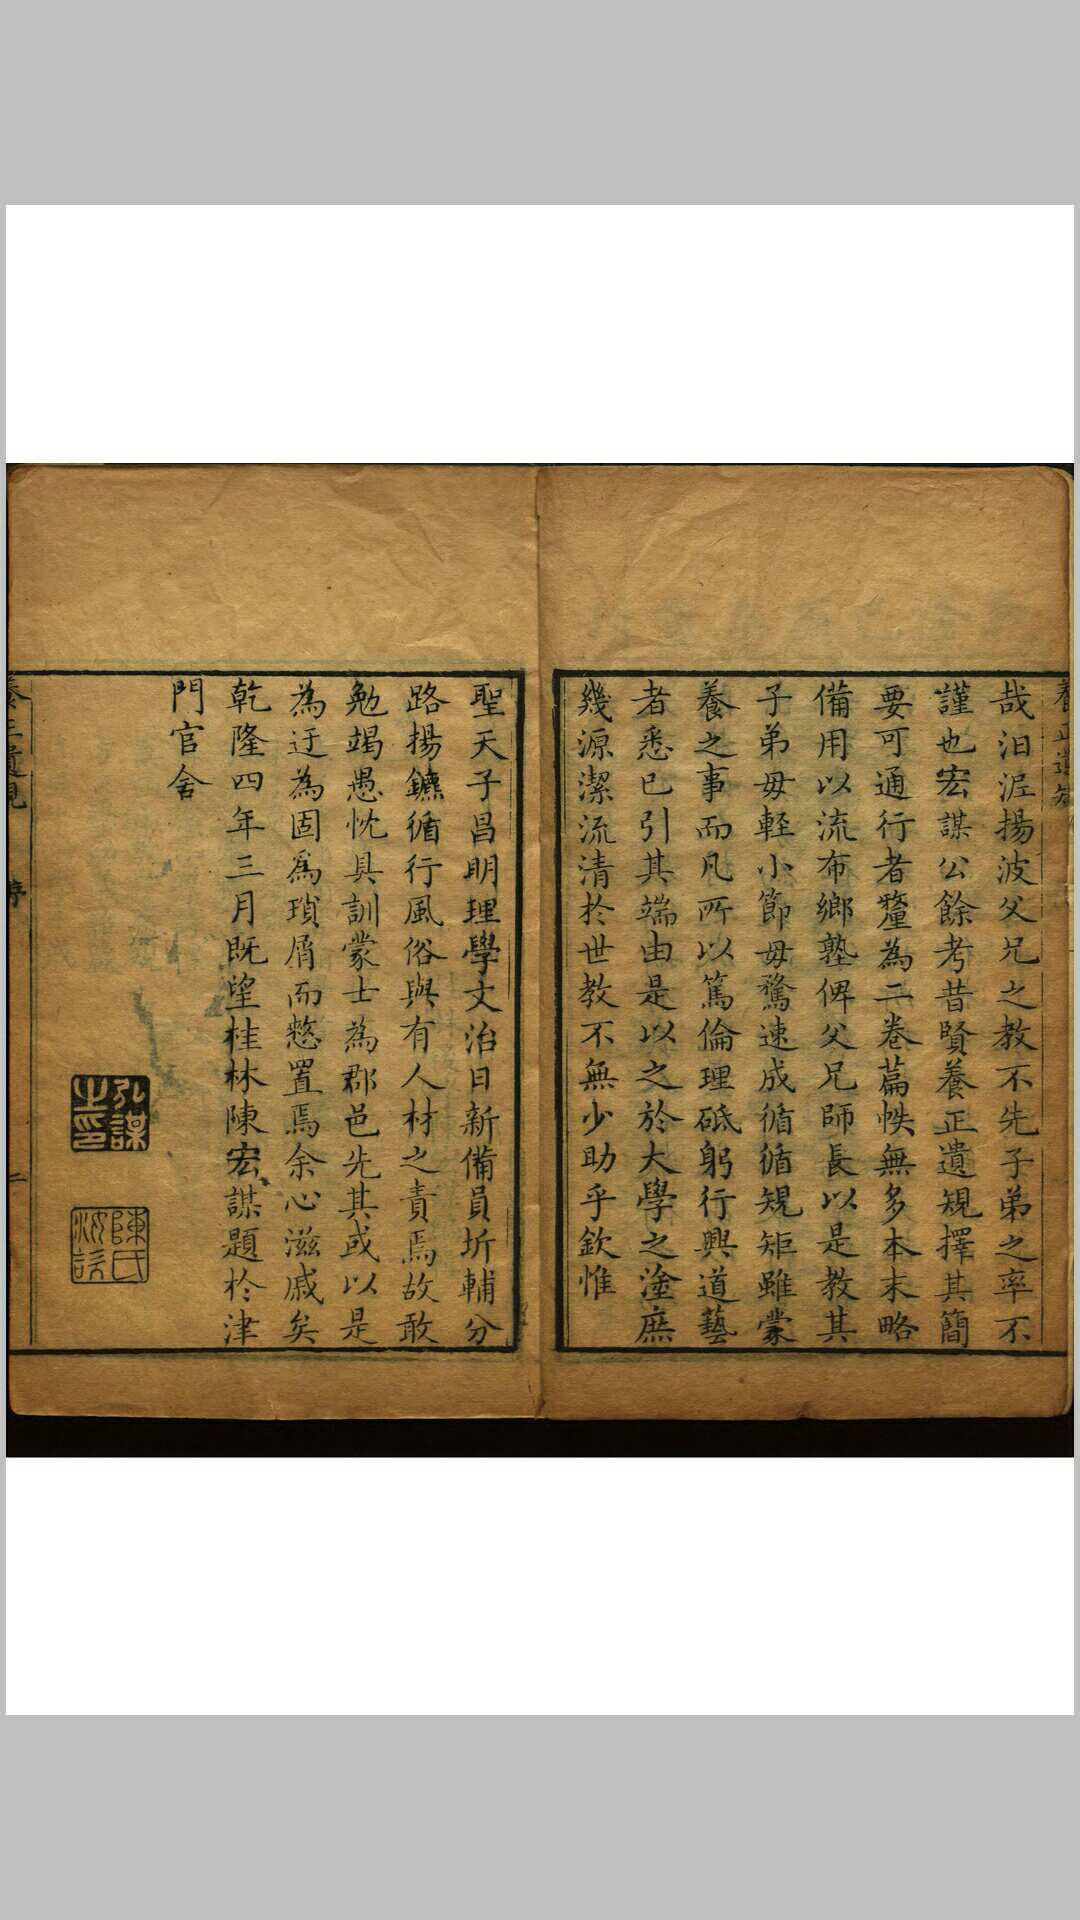 養正遺規
哉汩泥揚波父兄之教不先子弟之率不
謹也宏謀公餘考昔賢養正遺規擇其簡
要可通行者釐為二卷篇帙無多本末略
備用以流布鄉塾俾父兄師長以是教其
子弟毋輕小節毋騖速成循循規矩雖蒙
養之事而凡所以篤倫理砥躬行興道藝
者悉已引其端由是以之於大學之塗庶
幾源潔流清於世教不無少助乎欽惟
聖天子昌明理學文治日新備員圻輔分
路揚鑣循行風俗與有人材之責焉故敢
勉竭愚忱具訓蒙士為郡邑先其或以是
為迂為固為瑣屑而憖置焉余心滋戚矣
乾隆四年三月既望桂林陳宏謀題於津
門官舍
弘謀之印
陳氏汝諮
養正遺規 序 二